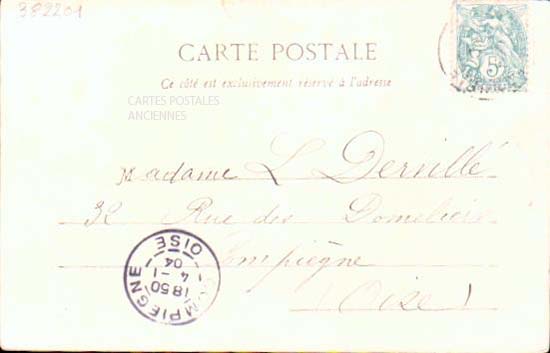 382201
5
CARTE POSTALE
Ce côté est exclusivement réservé à l'adresse
CARTES POSTALES
ANCIENNES
Madame L Derville
32 Rue des Domeliers
Compiègne
(Oise)
COMPIEGNE
OISE
1850
4 - 1
04